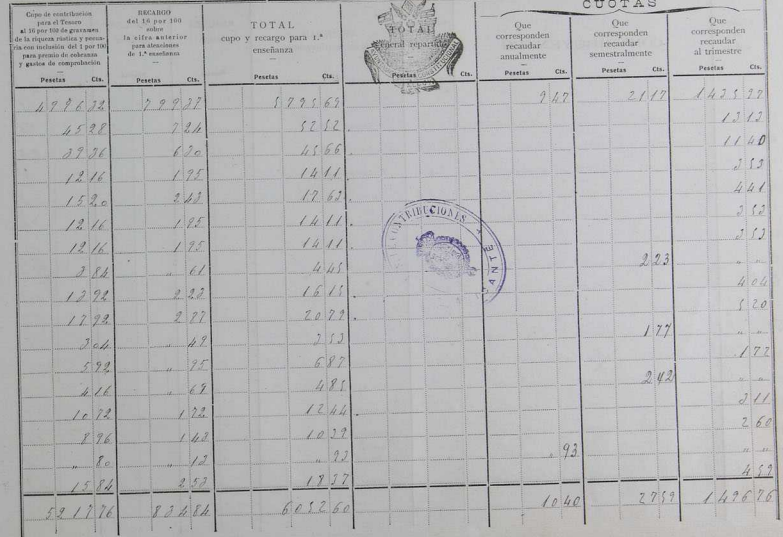 CUOTAS
Cupo de contribución
para el Tesoro
al 16 por 100 de gravamen
de la riqueza rústica y pecua-
ria con inclusión del 1 por 100
para premio de cobranza
y gastos de comprobación
RECARGO
del 16 por 100
sobre
la cifra anterior
para atenciones
de 1.ª enseñanza
TOTAL
cupo y recargo para 1.ª
enseñanza
TOTAL
general repartido
Que
corresponden
recaudar
anualmente
Que
corresponden
recaudar
semestralmente
Que
corresponden
recaudar
al trimestre
Pesetas Cts. Pesetas Cts. Pesetas Cts. Pesetas Cts. Pesetas Cts. Pesetas Cts. Pesetas Cts.
4996 32 799 37 5795 69 9 47 21 17 1435 97
45 28 7 24 52 52 13 13
39 36 6 30 45 66 11 40
12 16 1 95 14 11 3 53
15 20 2 43 17 63 4 41
12 16 1 95 14 11 3 53
12 16 1 95 14 11 3 53
3 84 " 61 4 45 2 23 " "
13 92 2 23 16 15 4 04
17 92 2 87 20 79 5 20
3 04 " 49 3 53 1 77 " "
5 92 " 95 6 87 1 72
4 16 " 69 4 85 2 42 " "
10 72 1 72 12 44 3 11
8 96 1 43 10 39 2 60
" 80 " 13 " 93 " 93 " "
15 84 2 53 18 37 4 59
5217 76 834 84 6052 60 10 40 27 59 1496 76
CONTRIBUCIONES